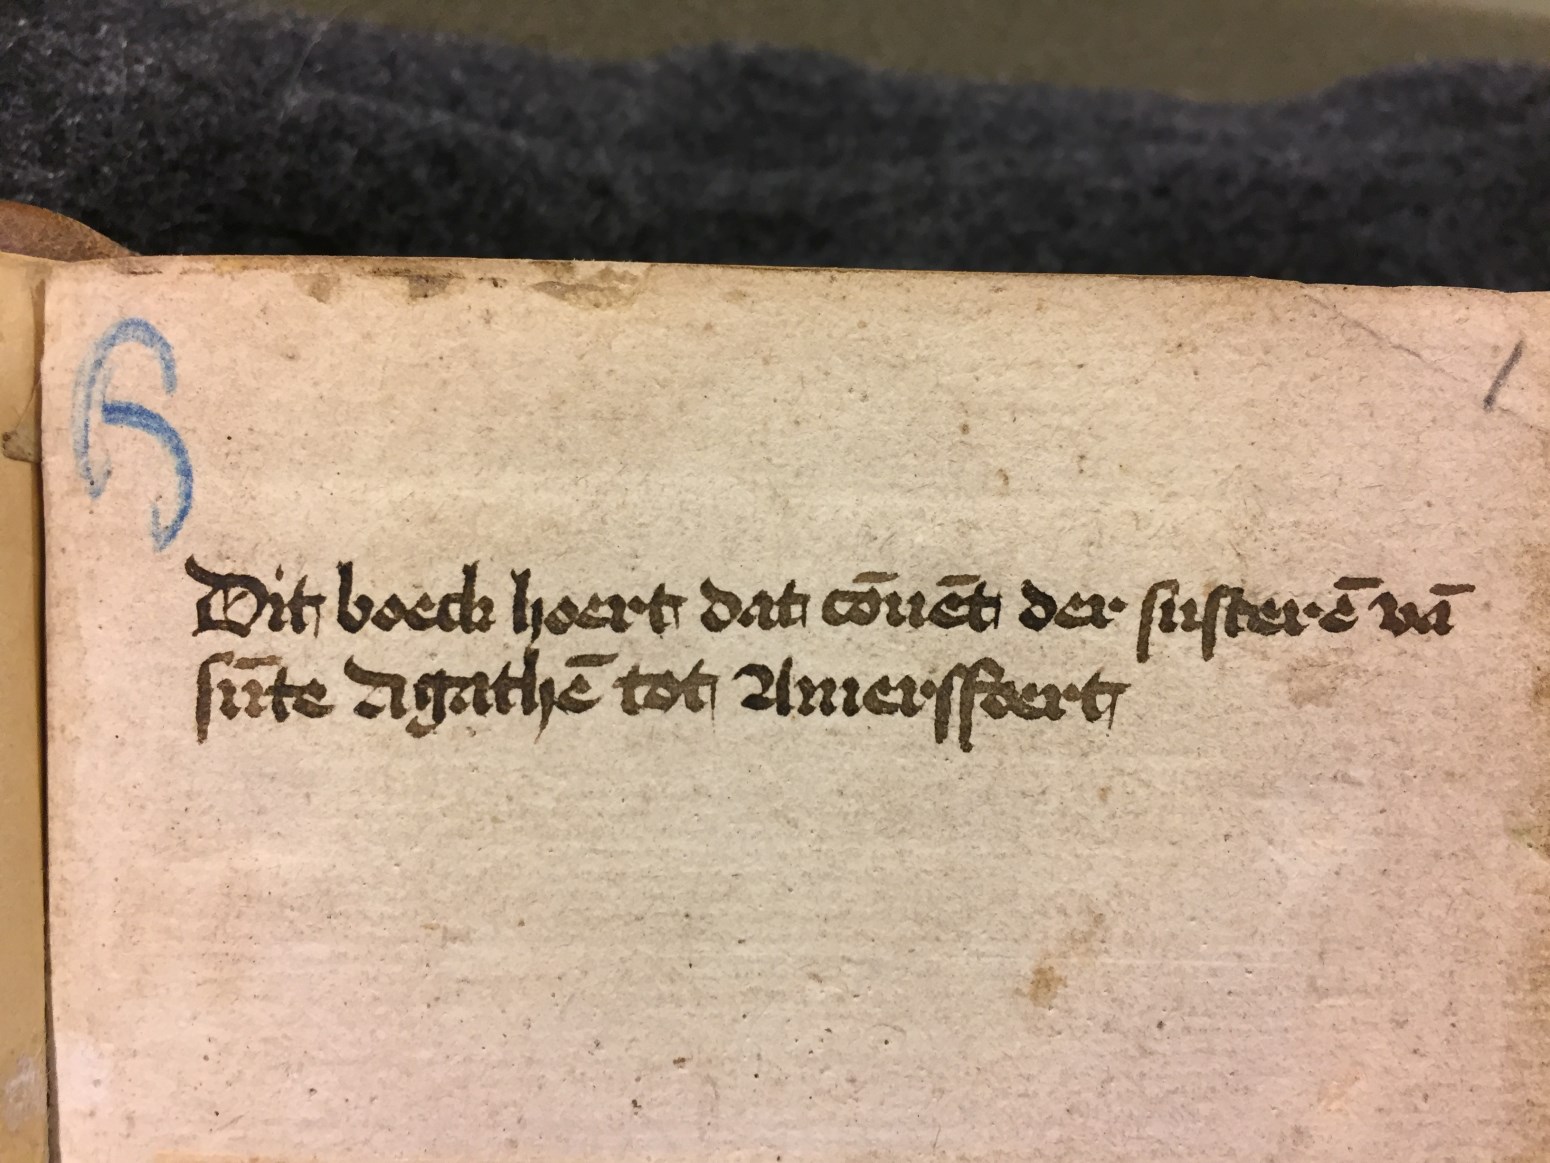 Dit boeck hoert dat cōuēt der susterē vā
sūte Agathē tot Amersfoert